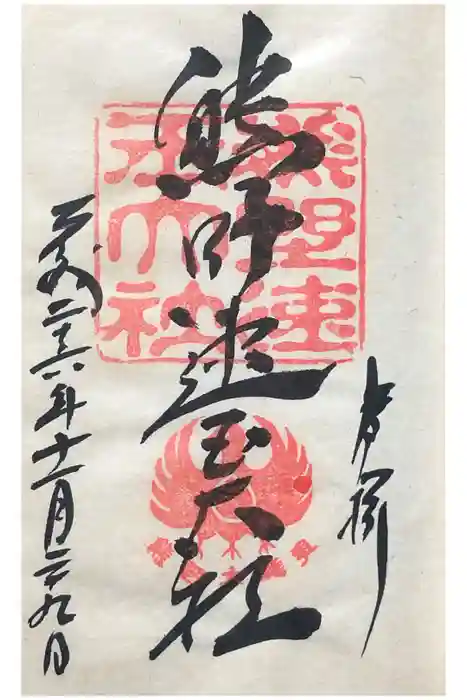 奉拝
熊野速玉大社
平成二十六年十一月二十九日
熊野速
玉大社